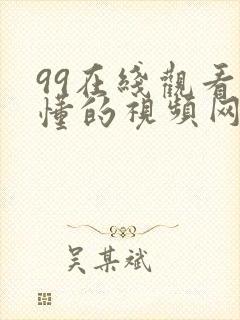 99在綫觀看
懂的視頻网
吴某斌